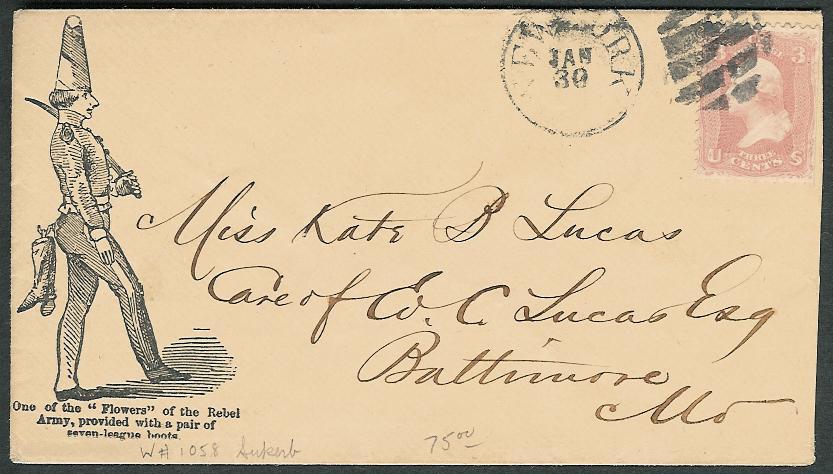 NEW YORK
JAN
30
3 3
U THREE CENTS S
Miss Kate B Lucas
Care of E. C. Lucas Esq
Baltimore
Md
One of the "Flowers" of the Rebel
Army, provided with a pair of
seven-league boots.
W# 1058
75 00